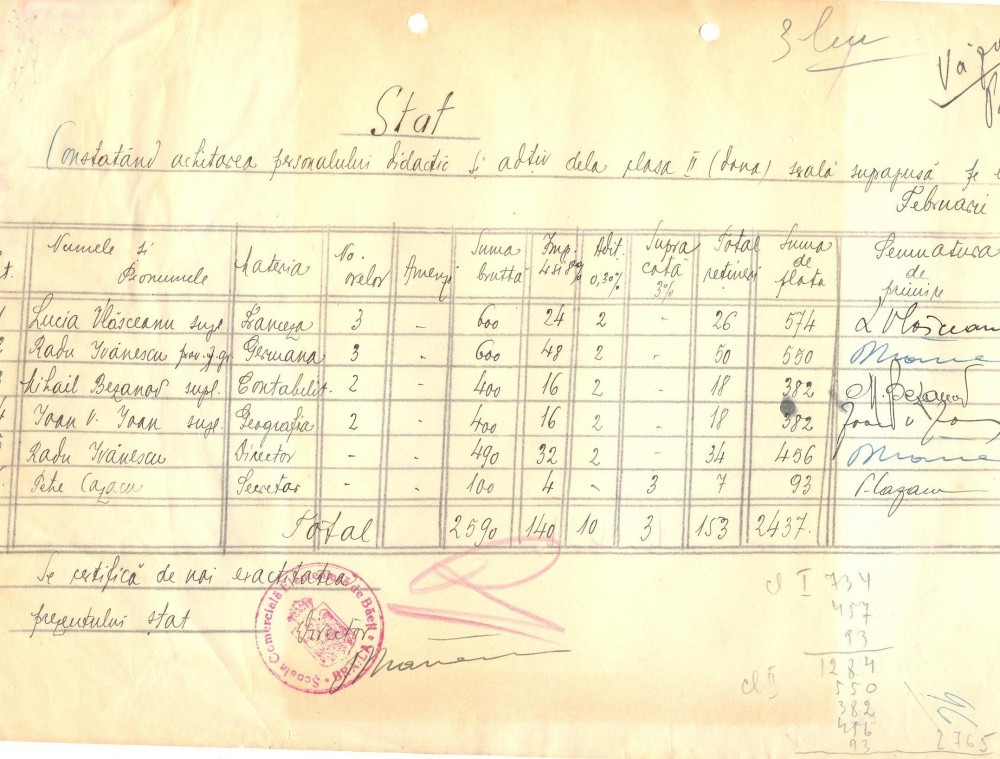 3 lei
Stat
Constatând achitarea personalului didactic și adtiv dela clasa II (doua) seală suprapusă pe
Februarie
Numele și Pronumele Materia No. orelor Amenzi Suma brutta Imp. 4 și 8% Adit. 0,30% Supra cotă 3% Total rețineri Suma de plata Semnatura de primire
Lucia Vlăsceanu supl Franceza 3 - 600 24 2 - 26 574 L Vlăscean
Radu Ivănescu prov. gr Germana 3 - 600 48 2 - 50 550
Mihail Bezanov supl. Contabilit. 2 - 400 16 2 - 18 382 M. Bezanov
4 Ioan V. Ioan supl. Geografia 2 - 400 16 2 - 18 382 Ioan V
Radu Ivănescu Director - - 490 32 2 - 34 456
Petre Cazacu Secretar - - 100 4 - 3 7 93 P. Cazacu
Total 2590 140 10 3 153 2437.
Se certifică de noi exactitatea
prezentului stat
Director
Școala Comercială de Băeți
cl I 734
457
93
1284
cl II 550
382
456
93
2765